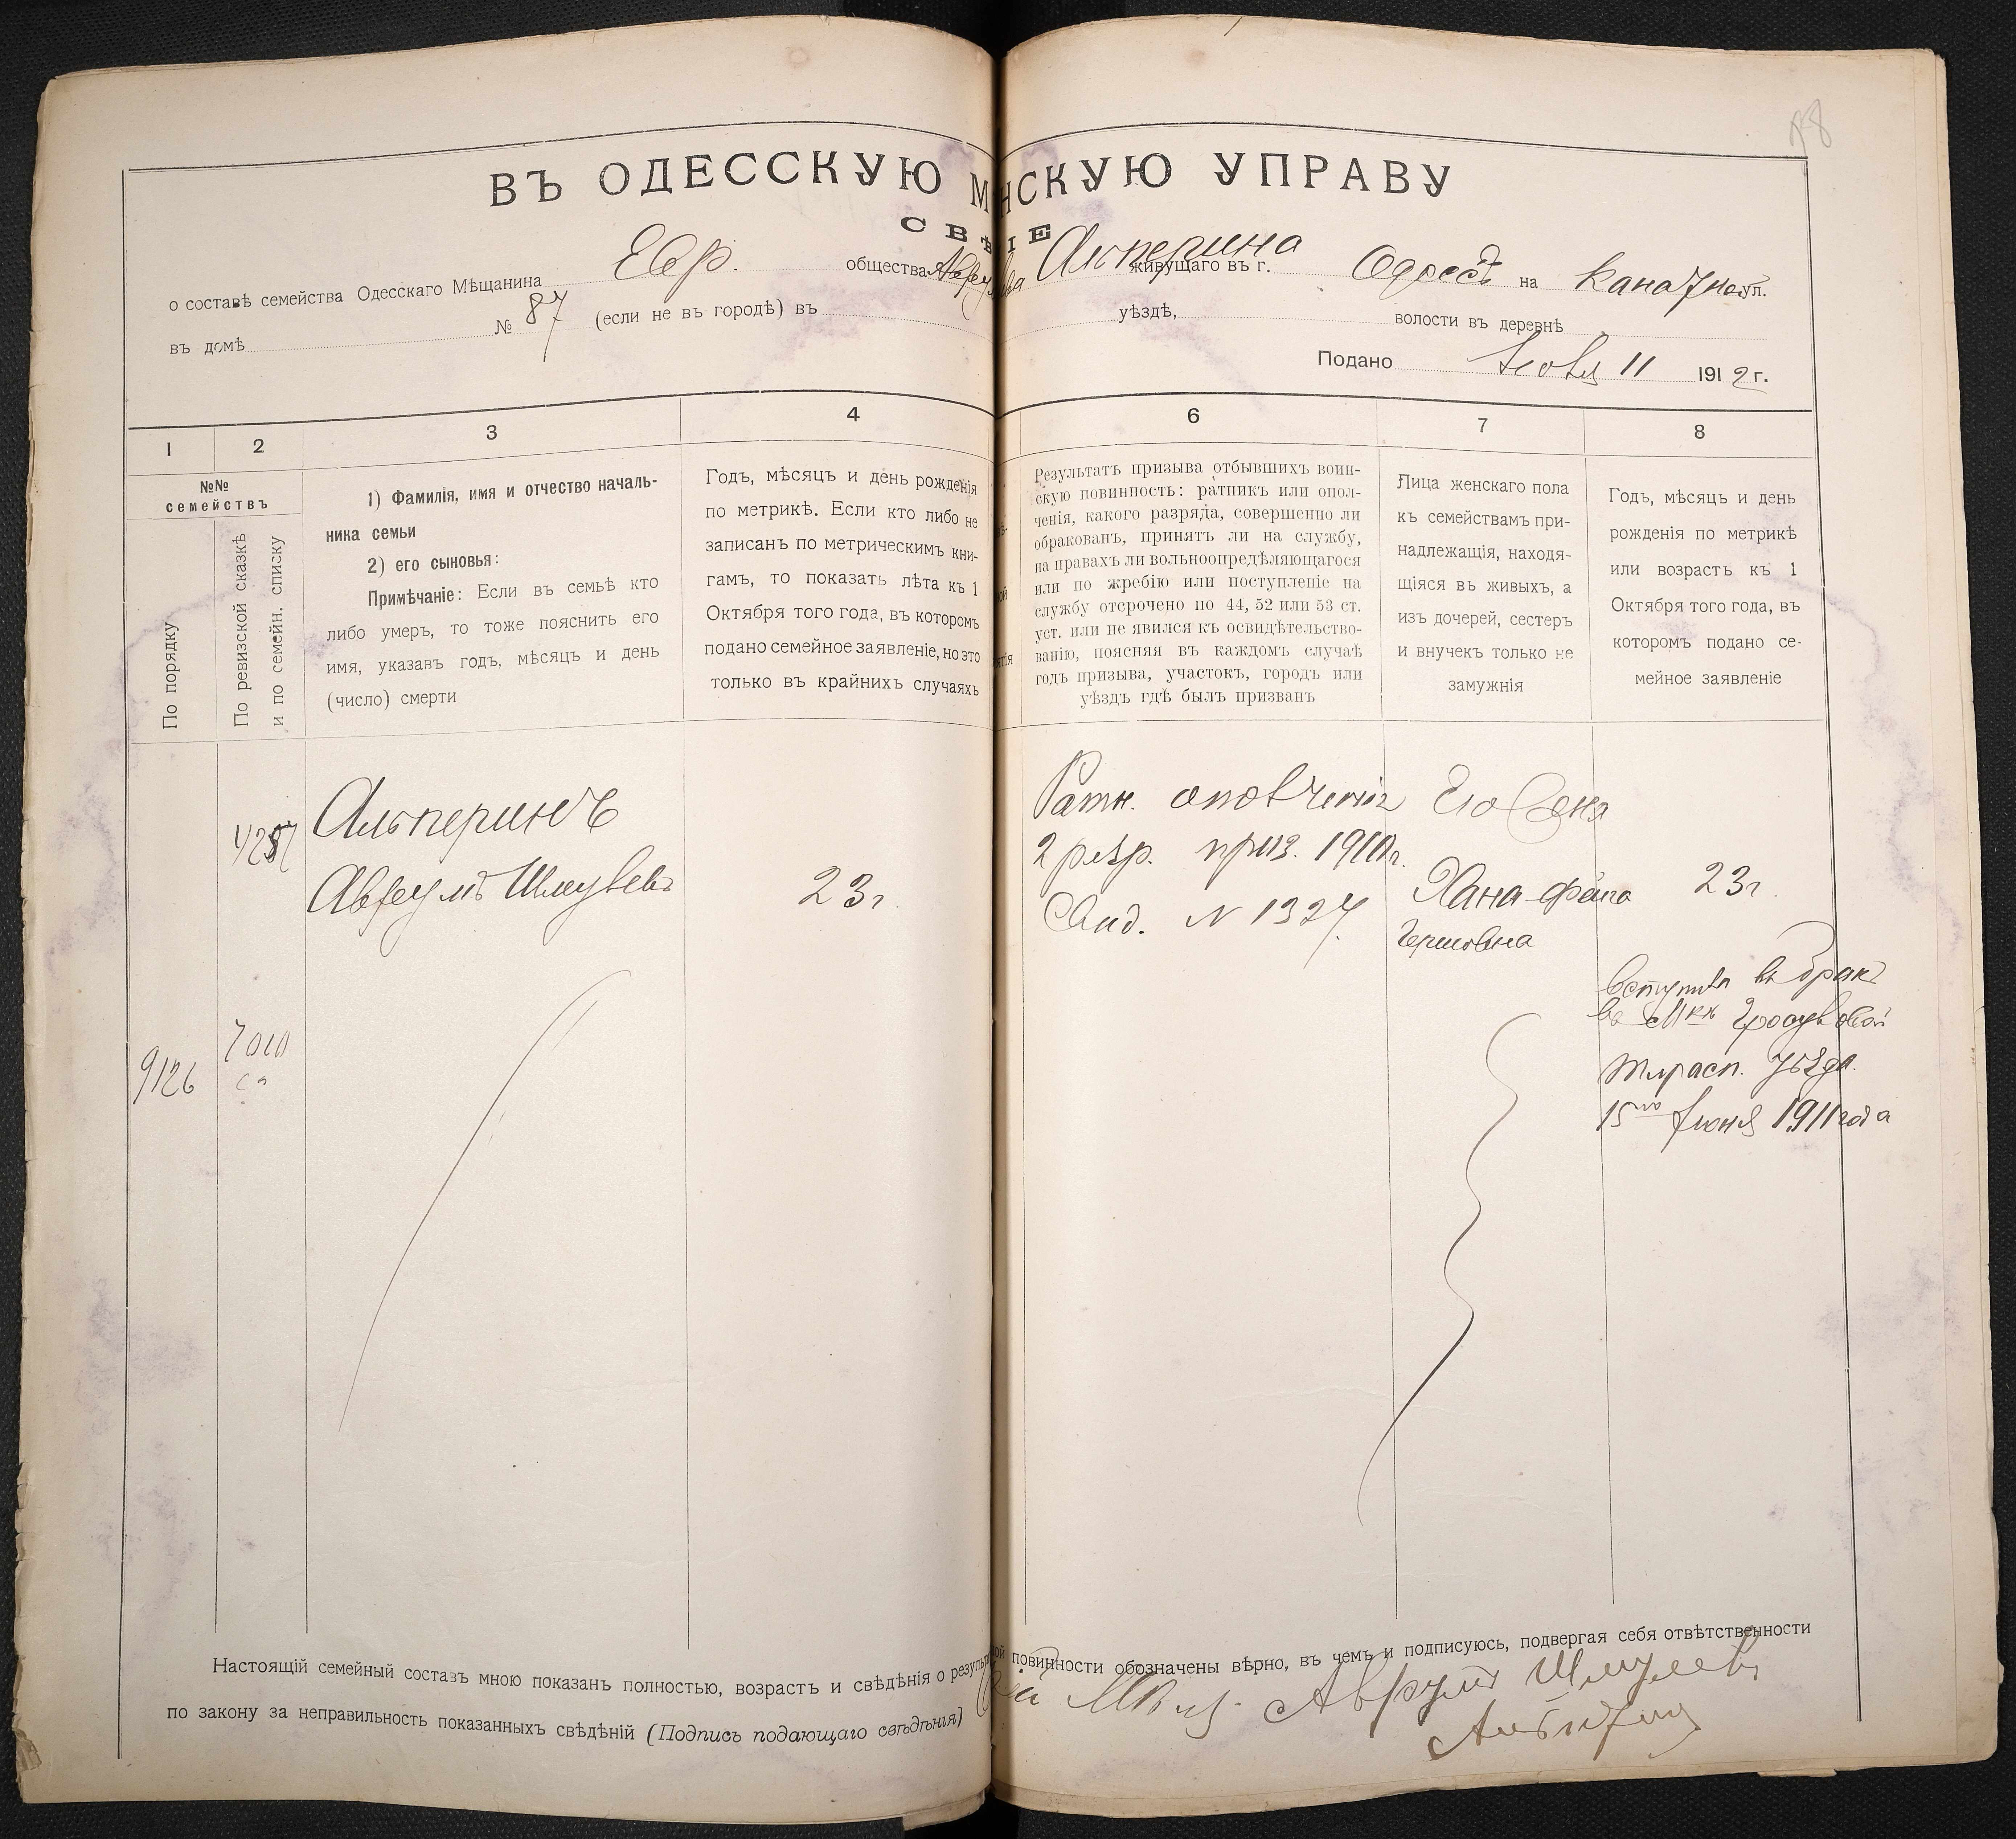 ВЪ ОДЕССКУЮ М НСКУЮ УПРАВУ
СВѢ ІЕ
о составѣ семейства Одесскаго Мѣщанина Евр. общества Аврума Альперина живущаго въ г. Одессѣ на Канатной ул.
въ домѣ № 87 (если не въ городѣ) въ уѣздѣ, волости въ деревнѣ
Подано 11 1912 г.
1 2 3 4 6 7 8
№№
семействъ
По порядку
По ревизской сказкѣ
и по семейн. списку
1) Фамилія, имя и отчество началь-
ника семьи
2) его сыновья:
Примѣчаніе: Если въ семьѣ кто
либо умеръ, то тоже пояснить его
имя, указавъ годъ, мѣсяцъ и день
(число) смерти
Годъ, мѣсяцъ и день рожденія
по метрикѣ. Если кто либо не
записанъ по метрическимъ кни-
гамъ, то показать лѣта къ 1
Октября того года, въ которомъ
подано семейное заявленіе, но это
только въ крайнихъ случаяхъ
Результатъ призыва отбывшихъ воин-
скую повинность: ратникъ или опол-
ченія, какого разряда, совершенно ли
обракованъ, принятъ ли на службу,
на правахъ ли вольноопредѣляющагося
или по жребію или поступленіе на
службу отсрочено по 44, 52 или 53 ст.
уст. или не явился къ освидѣтельство-
ванію, поясняя въ каждомъ случаѣ
годъ призыва, участокъ, городъ или
уѣздъ гдѣ былъ призванъ
Лица женскаго пола
къ семействамъ при-
надлежащія, находя-
щіяся въ живыхъ, а
изъ дочерей, сестеръ
и внучекъ только не
замужнія
Годъ, мѣсяцъ и день
рожденія по метрикѣ
или возрастъ къ 1
Октября того года, въ
которомъ подано се-
мейное заявленіе
Альперинъ
Аврумъ Шмулевъ
23 г.
Ратн. ополченія
2 разр. приз. 1910 г.
Свид. № 1327
Его жена
Хана-Фейга
Гершовна
23 г.
вступилъ въ бракъ
въ Мкѣ Гросуловой
Тирасп. уѣзда
15го Іюня 1911 года
9126
Настоящій семейный составъ мною показанъ полностью, возрастъ и свѣдѣнія о резуль ой повинности обозначены вѣрно, въ чемъ и подписуюсь, подвергая себя отвѣтственности
по закону за неправильность показанныхъ свѣдѣній (Подпись подающаго свѣдѣнія) Аврумъ Шмулевъ